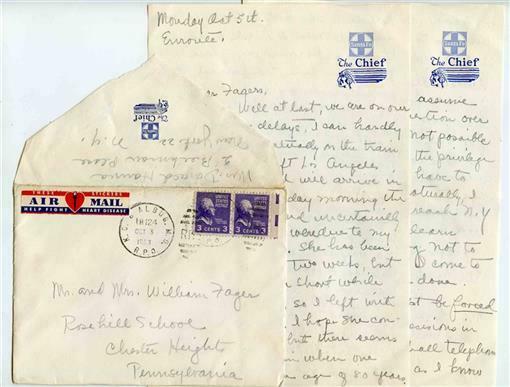 Monday Oct 5th.
Enroute.
Santa Fe
The Chief
Santa Fe
The Chief
Fagers,
Well at last, we are on our
delays, I can hardly
actually on the train
ft Los Angeles in
will arrive in
day morning the
and uncertainty
were due to my
She has been
two weeks, but
short while
so I left with
I hope she con-
but there seems
when one
age of 80 years
assume
ction over
not possible
the privilege
have to
turally, I
reach N.Y
learn
not to
I come to
done.
be forced
cisions in
all telephone
as I know
The Chief
New York 22 N.Y.
2 Beekman Place
THESE STICKERS
AIR MAIL
HELP FIGHT HEART DISEASE
ALBUQ.
TR 124
OCT
R.P.O.
UNITED STATES POSTAGE
3 CENTS 3
3 CENTS 3
Mr. and Mrs. William Fager
Rosehill School
Chester Heights
Pennsylvania